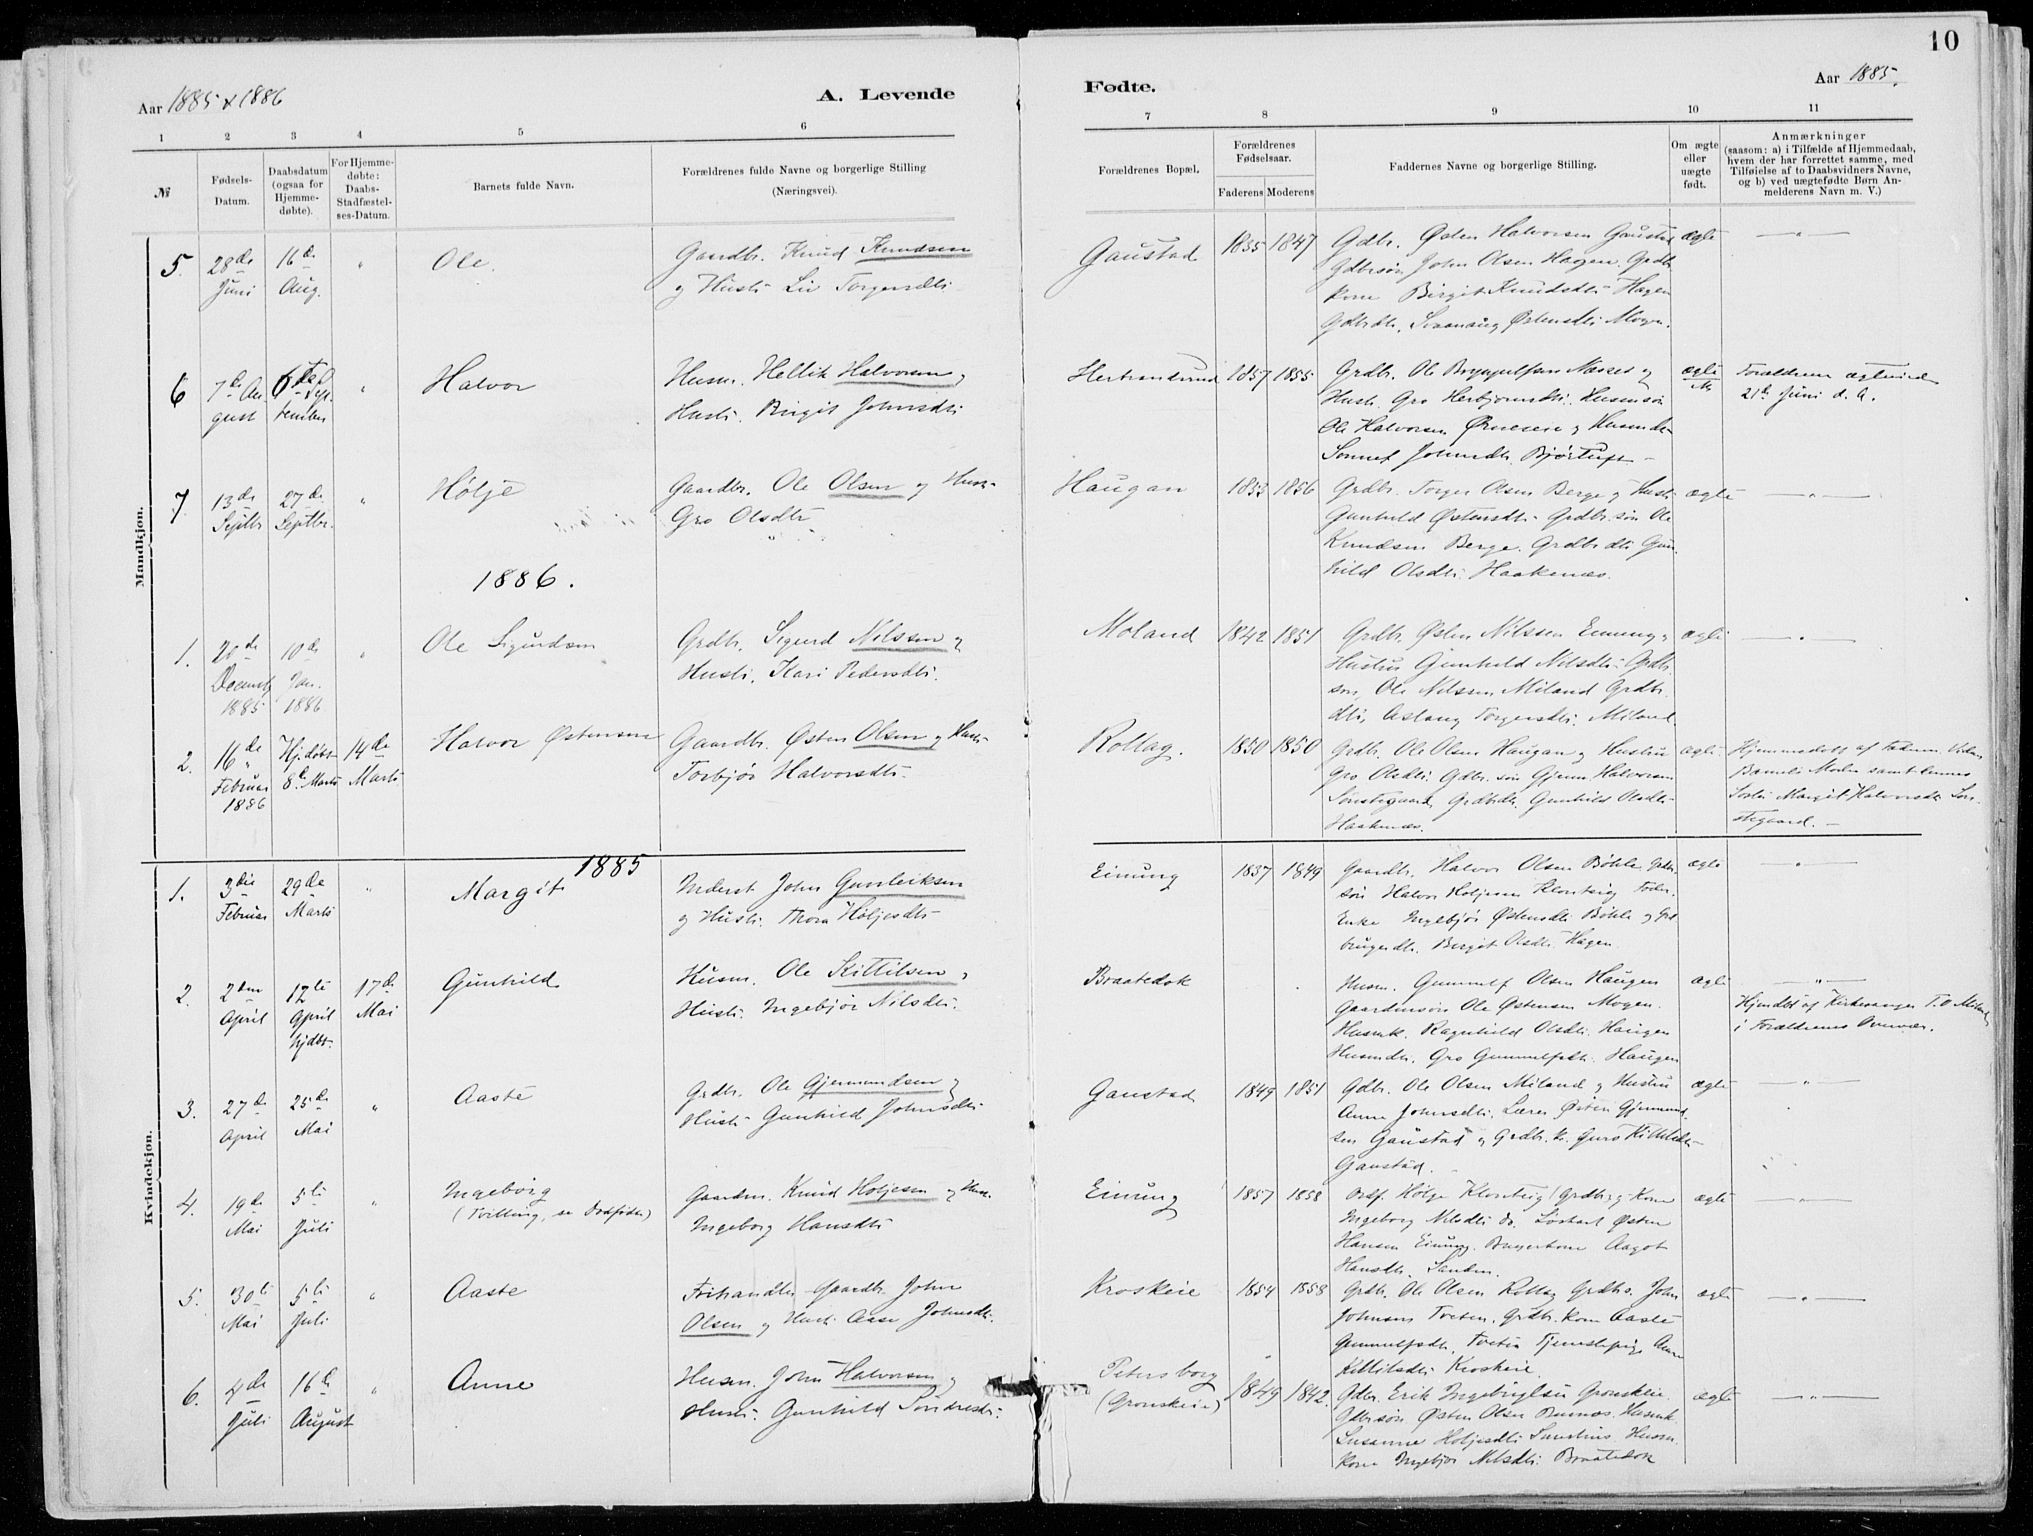 10
Aar 1885 & 1886
A. Levende
Fødte.
Aar 1885.
1 2 3 4 5 6 7 8 9 10 11
№
Fødsels-Datum.
Daabsdatum (ogsaa for Hjemmedøbte).
For Hjemmedøbte: Daabs-Stadfæstelses-Datum.
Barnets fulde Navn.
Forældrenes fulde Navne og borgerlige Stilling
(Næringsvei).
Forældrenes Bopæl.
Forældrenes Fødselsaar.
Faderens Moderens
Faddernes Navne og borgerlige Stilling.
Om ægte eller uægte født.
Anmærkninger
(saasom: a) i Tilfælde af Hjemmedaab,
hvem der har forrettet samme, med
Tilføielse af to Daabsvidners Navne,
og b) ved uægtefødte Børn An-
melderens Navn m. V.)
Mandkjøn.
5. 28de Juni 16de Aug. " Ole.
Gaardbr. Knud Knudsen
og Hustr. Liv Torgersdtr.
Gaustad 1835 1847
Gdbr. Østen Halvorsen Gaustad
Gdbrsøn John Olsen Haagen. Grdbr
kone Birgit Knudsdtr. Hagen
Gdbrdtr. Svanaug Østensdtr. Mogen.
ægte — " —
6 7de August 6te September " Halvor
Husm. Hellik Halvorsen og
Hustr. Birgit Johnsdtr.
1857 1855
Grdbr. Ole Brynjulfsen Næsset og
Hustr. Gro Herbjørnsdtr. Husmsøn
Ole Halvorsen
Sønnef Johnsdtr. Bjørtuft
ægte
Forældrene
21de Juni d. A.
7. 13de Septbr 27de Septbr. " Hølje
Gaardbr. Ole Olsen og Hustr.
Gro Olsdtr.
Haugan 1853 1856
Grdbr. Torger Olsen Berge og Hustr.
Gunhild Østensdtr. Grdbr.søn Ole
Knudsen Berge. Grdbr.dtr. Gun-
hild Olsdtr. Haakenæs.
ægte — " —
1886.
1. 20de Decemb 1885 10de Jan. 1886 " Ole Sigurdsøn
Grdbr. Sigurd Nilssen og
Hustr. Kari Pedersdtr.
Moland 1842 1851
Grdbr. Østen Nilssen Einung og
Hustru Gunhild Nilsdtr. Grdbr.
søn, Ole Nilssen Miland Grdbr.
dtr, Aslaug Torgersdtr. Miland
ægte — " —
2. 16de Februar 1886 Hj.døbt 8de Marts 14de Marts Halvor Østensen
Gaardbr. Østen Olsen og Hustr.
Torbjør Halvorsdtr.
Rollag. 1850 1850
Grdbr. Ole Olsen Haugan og Hustru
Gro Olsdtr. Gdbr.søn Gjermu. Halvorsen
Sønstegaard, Grdbrdtr. Gunhild Olsdtr.
Haakenæs.
ægte
Hjemmedøbt af Faderen. Vidner
Barnets Moder samt hennes
Søster Margit Halvorsdtr. Søn-
stegaard. —
Kvindekjøn.
1885
1. 3die Februar 29de Marts " Margit
Inderst John Gunleiksen
og Hustr. Thora Høljesdtr.
Einung 1837 1849
Gaardbr. Halvor Olsen Bøhle Gdbr.
søn Halvor Høljesen
Enke Ingebjør Østensdtr. Bøhle og Grd
brugerdtr. Bergit Olsdtr. Hagen
ægte — " —
2. 2den April 12te April hjdbt. 17de Mai Gunhild
Husm. Ole Kittilsen og
Hustr. Ingebjør Nilsdtr.
Braatedok
Husm. Gunnulf Olsen Haugen
Gaardmsøn Ole Østensen Mogen.
Husmk. Ragnhild Olsdtr. Haugen
Husmdtr. Gro Gunnulfsdtr. Haugen
ægte — " —
Hjemdbt af Kirkesanger T. O. Miland
i Forældrenes
3. 27de April 25de Mai " Aaste
Grdbr. Ole Gjermundsen og
Hustr. Gunhild Johnsdtr.
Gaustad 1849 1851
Gdbr. Ole Olsen Miland og Hustru
Anne Johnsdtr. Lærer Østen Gjermund-
sen Gaustad og Grdbr. k. Guro Kittilsdtr.
Gaustad.
ægte — " —
4. 19de Mai 5te Juli " Ingeborg
(Tvilling, se Dødfødte)
Gaardm. Knud Høljesen og Hustr.
Ingeborg Hansdtr.
Einung 1857 1858
Hølje Klonteig (Grdbr) og Kone
Ingeborg Nilsdtr. do. Løskarl Østen
Hansen Einung. Brugerkone Aagot
Hansdtr. Sanden.
ægte — " —
5. 30te Mai 5te Juli " Aaste
Gaardbr. John
Olsen og Hustr. Aase Johnsdtr.
Kroskeie 1854 1858
Grdbr. Ole Olsen Rollag Grdbs. John
Johnsen Tveten. Grdbr. kone Aaste
Gunnulfsdtr. Tveten Tjenestepige Anne
Kittilsdtr. Kroskeie
ægte — " —
6. 4de Juli 16de August " Anne
Husm. John Halvorsen og
Hustr. Gunhild Sondresdtr.
Petersborg
(Grønskeie) 1849 1842.
Gdbr. Erik Ingebrigtsen Grønskeie.
Gdbrsøn Østen Olsen Busnæs. Husmk.
Susanne Høljesdtr. Husm.
kone Ingebjør Nilsdtr. Braatedok
ægte — " —